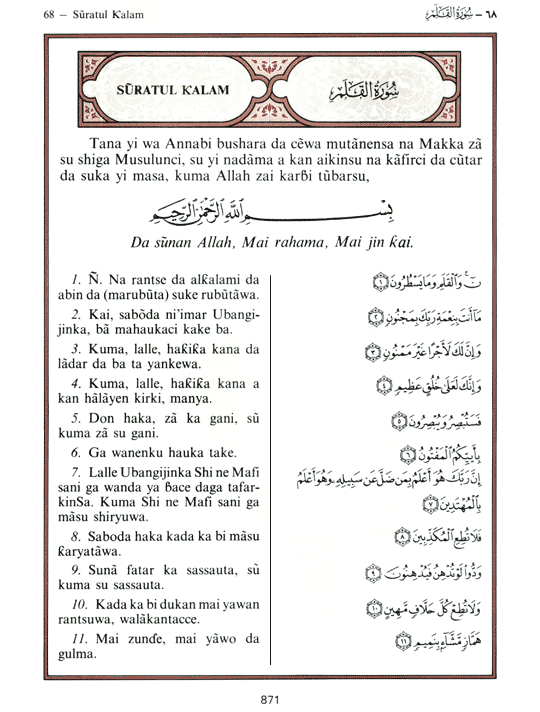 68 — Sūratul Ƙalam
٦٨ — سُورَةُ القَلَمِ
SŪRATUL ƘALAM
سُورَةُ القَلَمِ
Tana yi wa Annabi bushara da cẽwa mutãnensa na Makka zã
su shiga Musulunci, su yi nadãma a kan aikinsu na kãfirci da cũtar
da suka yi masa, kuma Allah zai karɓi tũbarsu,
بِسْمِ اللَّهِ الرَّحْمَٰنِ الرَّحِيمِ
Da sũnan Allah, Mai rahama, Mai jin ƙai.
1. Ñ. Na rantse da alƙalami da
abin da (marubũta) suke rubũtãwa.
2. Kai, sabõda ni'imar Ubangi-
jinka, bã mahaukaci kake ba.
3. Kuma, lalle, haƙiƙa kana da
lãdar da ba ta yankewa.
4. Kuma, lalle, haƙiƙa kana a
kan hãlãyen kirki, manya.
5. Don haka, zã ka gani, sũ
kuma zã su gani.
6. Ga wanenku hauka take.
7. Lalle Ubangijinka Shi ne Mafi
sani ga wanda ya ɓace daga tafar-
kinSa. Kuma Shi ne Mafi sani ga
mãsu shiryuwa.
8. Saboda haka kada ka bi mãsu
ƙaryatãwa.
9. Sunã fatar ka sassauta, sũ
kuma su sassauta.
10. Kada ka bi dukan mai yawan
rantsuwa, walãkantacce.
11. Mai zunɗe, mai yãwo da
gulma.
نٓ ۚ وَالْقَلَمِ وَمَا يَسْطُرُونَ ١
مَا أَنتَ بِنِعْمَةِ رَبِّكَ بِمَجْنُونٍ ٢
وَإِنَّ لَكَ لَأَجْرًا غَيْرَ مَمْنُونٍ ٣
وَإِنَّكَ لَعَلَىٰ خُلُقٍ عَظِيمٍ ٤
فَسَتُبْصِرُ وَيُبْصِرُونَ ٥
بِأَييِّكُمُ الْمَفْتُونُ ٦
إِنَّ رَبَّكَ هُوَ أَعْلَمُ بِمَن ضَلَّ عَن سَبِيلِهِ وَهُوَ أَعْلَمُ
بِالْمُهْتَدِينَ ٧
فَلَا تُطِعِ الْمُكَذِّبِينَ ٨
وَدُّوا لَوْ تُدْهِنُ فَيُدْهِنُونَ ٩
وَلَا تُطِعْ كُلَّ حَلَّافٍ مَّهِينٍ ١٠
هَمَّازٍ مَّشَّاءٍ بِنَمِيمٍ ١١
871